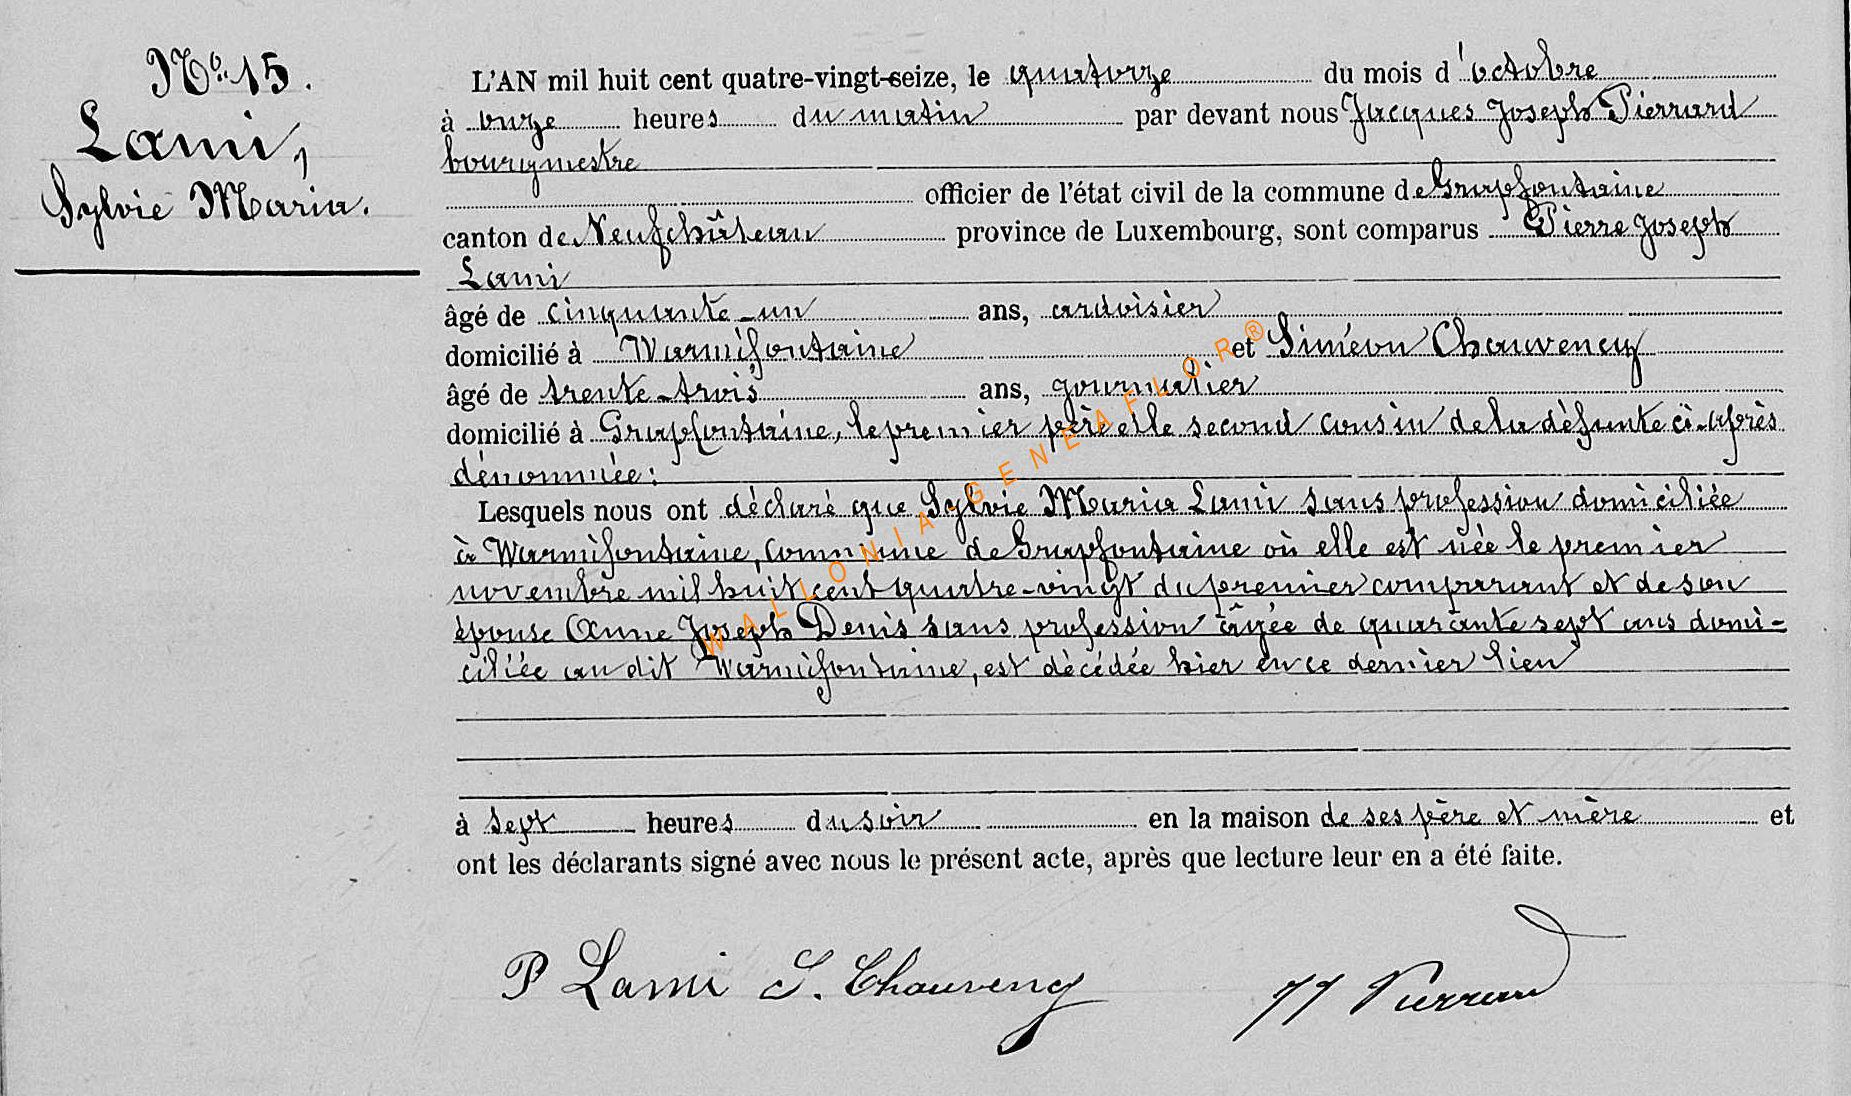 No 15.
Lami,
Sylvie Maria.
L'AN mil huit cent quatre-vingt-seize, le quatorze du mois d'octobre
à onze heures du matin par devant nous Jacques Joseph Pierrard
bourgmestre
officier de l'état civil de la commune de Grapfontaine
canton de Neufchâteau province de Luxembourg, sont comparus Pierre Joseph
Lami
âgé de cinquante-un ans, ardoisier
domicilié à Warmifontaine et Siméon Chauvency
âgé de trente-trois ans, journalier
domicilié à Grapfontaine, le premier père et le second cousin de la défunte ci-après
dénommée:
Lesquels nous ont déclaré que Sylvie Maria Lami sans profession domiciliée
à Warmifontaine, commune de Grapfontaine où elle est née le premier
novembre mil huit cent quatre-vingt du premier comparant et de son
épouse Anne Joseph Denis sans profession âgée de quarante sept ans domi-
ciliée au dit Warmifontaine, est décédée hier en ce dernier lieu
à sept heures du soir en la maison de ses père et mère et
ont les déclarants signé avec nous le présent acte, après que lecture leur en a été faite.
P Lami S. Chauvency JJ Pierrard
WALLONIA GENEAFLOR®